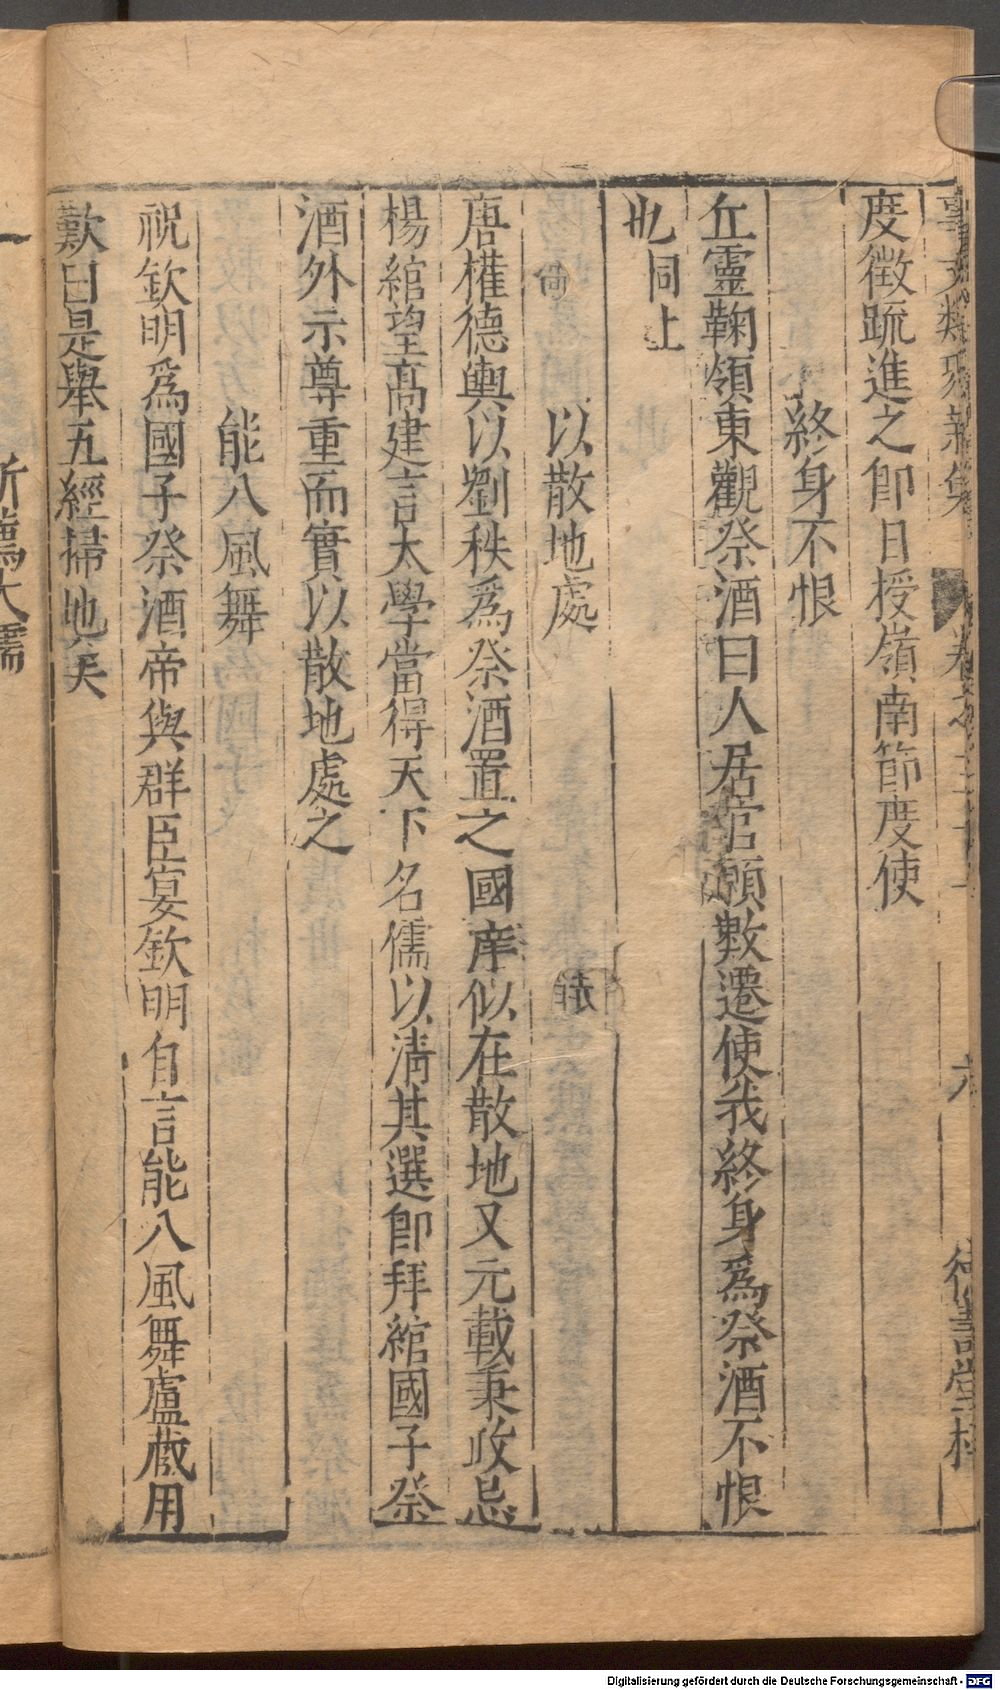 事文類聚新集 卷之三十 六 德壽堂梓
度徵疏進之卽日授嶺南節度使
終身不恨
丘靈鞠領東觀祭酒曰人居官願數遷使我終身爲祭酒不恨
也同上
以散地處
唐權德輿以劉秩爲祭酒置之國庠似在散地又元載秉政忌
楊綰望高建言太學當得天下名儒以清其選卽拜綰國子祭
酒外示尊重而實以散地處之
能八風舞
祝欽明爲國子祭酒帝與群臣宴欽明自言能八風舞盧藏用
歎曰是舉五經掃地矣
Digitalisierung gefördert durch die Deutsche Forschungsgemeinschaft - DFG